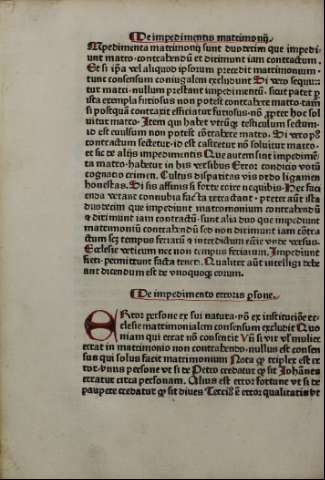 De impedimentis matrimonij
Mpedimenta matrimonij sunt duodecim que impedi
unt matro. contrahendũ et dirimunt iam contractum.
Et si ip̃a vel aliquod ipsorum precedit matrimonium.
tunc consensum coniugalem excludunt Si vero sequun
tur matri. nullum prestant impedimentũ. sicut patet p
ista exempla furiosus non potest contrahere matro. tam̃
si postquã contraxit efficiatur furiosus. nõ ꝓpter hoc sol
uitur matro. Item qui habet vtrũqꝫ testiculum sectum.
id est euulsum non potest cõtrahere matro. Si vero pꝰ
contractum sectetur. id est castretur nõ soluitur matro.
et sic de alijs impedimentis Que autem sint impedimẽ
ta matro. habetur in his versibus Error condicio votũ
cognatio crimen. Cultus disparitas vis ordo ligamen
honestas. Si sis affinis si forte coire nequibis. Hec soci
anda vetant connubia facta retractant. preter aũt ista
duodecim que impediunt matrimonium contrahendũ
& dirimunt iam contractũ. sunt alia duo que impediunt
matrimoniũ contrahendũ sed non dirimunt iam cõtra
ctum scꝫ tempus feriatũ & interdictum ecc̃ie vnde versus.
Ecclesie vetitum nec non tempus feriatum. Impediunt
fieri. permittunt facta teneri. Qualiter aũt intelligi debe
ant dicendum est de vnoquoqꝫ eorum.
De impedimento erroris ꝑsone.
ERror persone ex sui natura. nõ ex institucióe ec
clesie matrimonialem consensum excludit Quo
niam qui errat nõ consentit Vñ si vir vl̃ mulier
errat in matrimonio non contrahendo. nullus est consen
sus qui solus facit matrimonium Nota ꝙ triplex est er
ror. vnus persone vt si de Petro credatur ꝙ sit Johãnes
erratur circa personam. Alius est error fortune vt si de
paupere credatur ꝙ sit diues Tercius ẽ error qualitatis vt